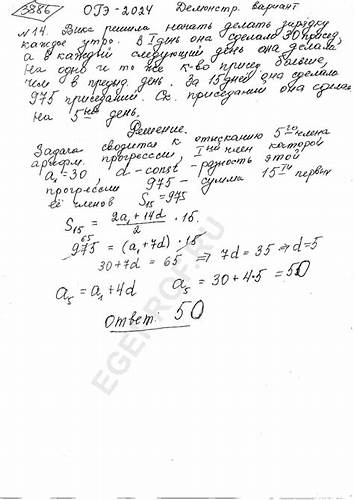 3886 ОГЭ-2024 Демонстр. вариант
№14. Вика решила начать делать зарядку
каждое утро. В I день она сделала 30 присед,
а в каждый следующий день она делала
на одно и то же к-во присед больше,
чем в предыд день. За 15 дней она сделала
975 приседаний. Ск. приседаний она сделала
на 5ый день.
Решение.
Задача сводится к отысканию 5го члена
арифм. прогрессии, I член которой
a₁=30, d-const-разность этой
прогрессии 975 - сумма 15ти первых
её членов S₁₅=975
S₁₅ = (2a₁+14d)/2 · 15
65
975 = (a₁+7d) · 15
30+7d = 65 ⇒ 7d = 35 ⇒ d=5
a₅ = a₁+4d a₅ = 30+4·5=50
Ответ: 50
EGEPROF.RU